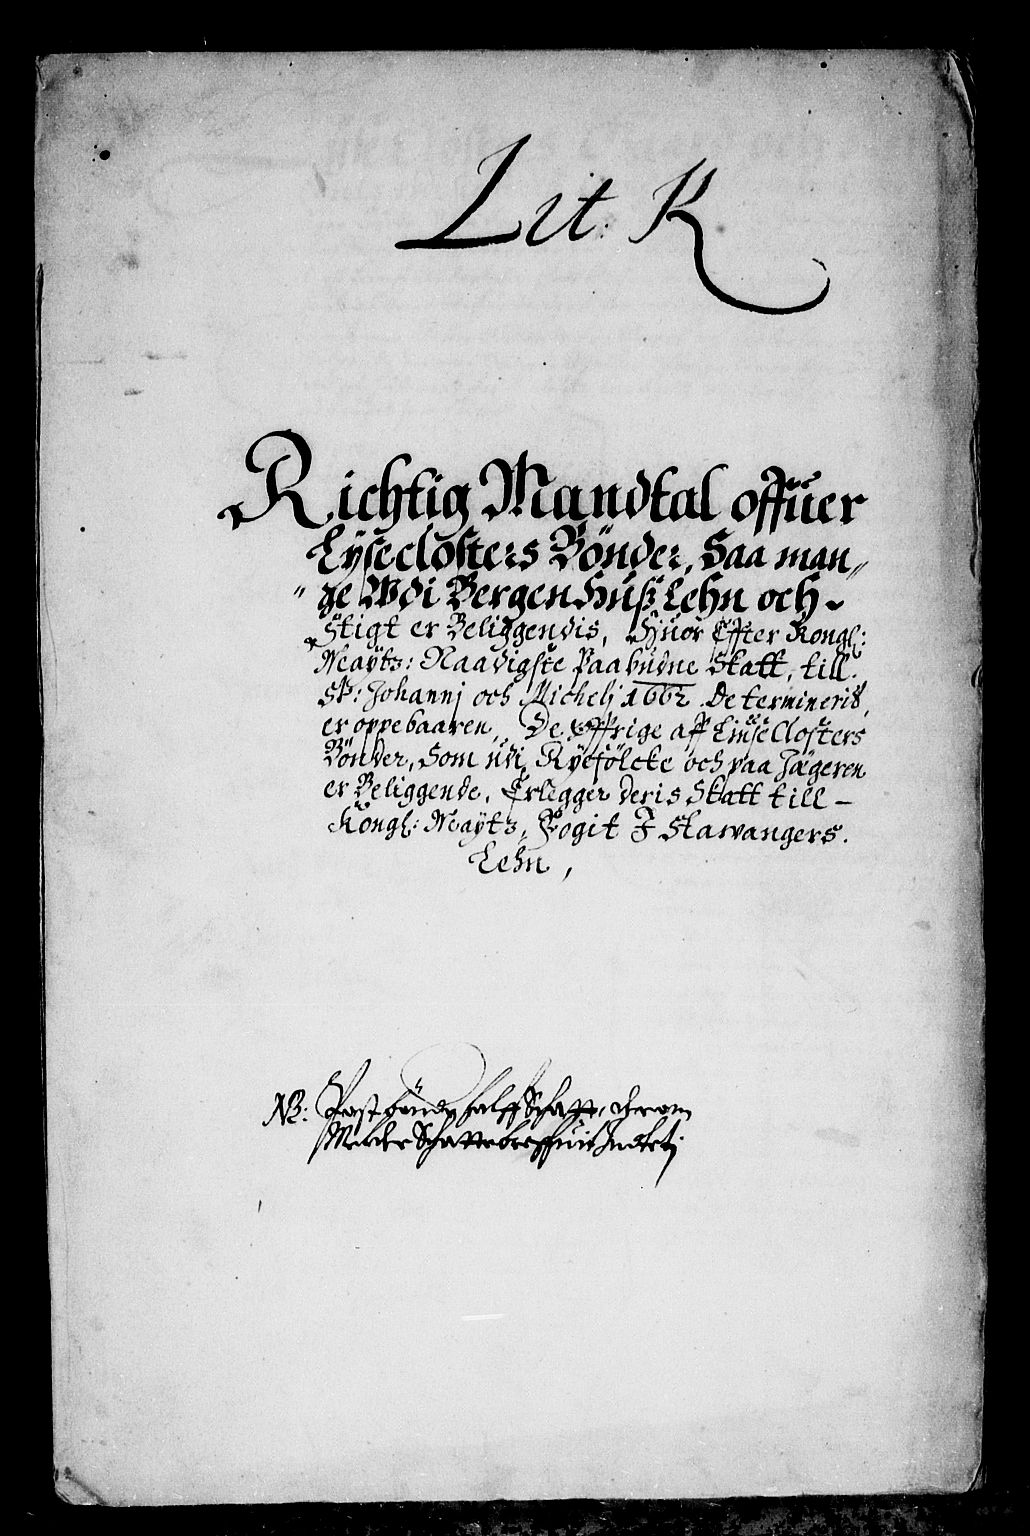 Lit. K
Richtig Mandtal offuer
Lyseclosters Bönder, Saa man„
„ge Wdi Bergenhuß Lehn och
Stigt er Beliggendis, Huor Effter Kongl:
Mayts: Naadigste Paabudne Skatt, till
St: Johannj och Michelj 1662. Determinerid,
er oppebaaren, De Øffrige aff Liuseclosters
Bönder, Som udi Ryefölcke och paa Jæderen
er Beliggende, Erlegger deris Skatt till –
Kongl: Mayts, Fogit I Stawangers.
Lehn,
NB: halff Schatt,